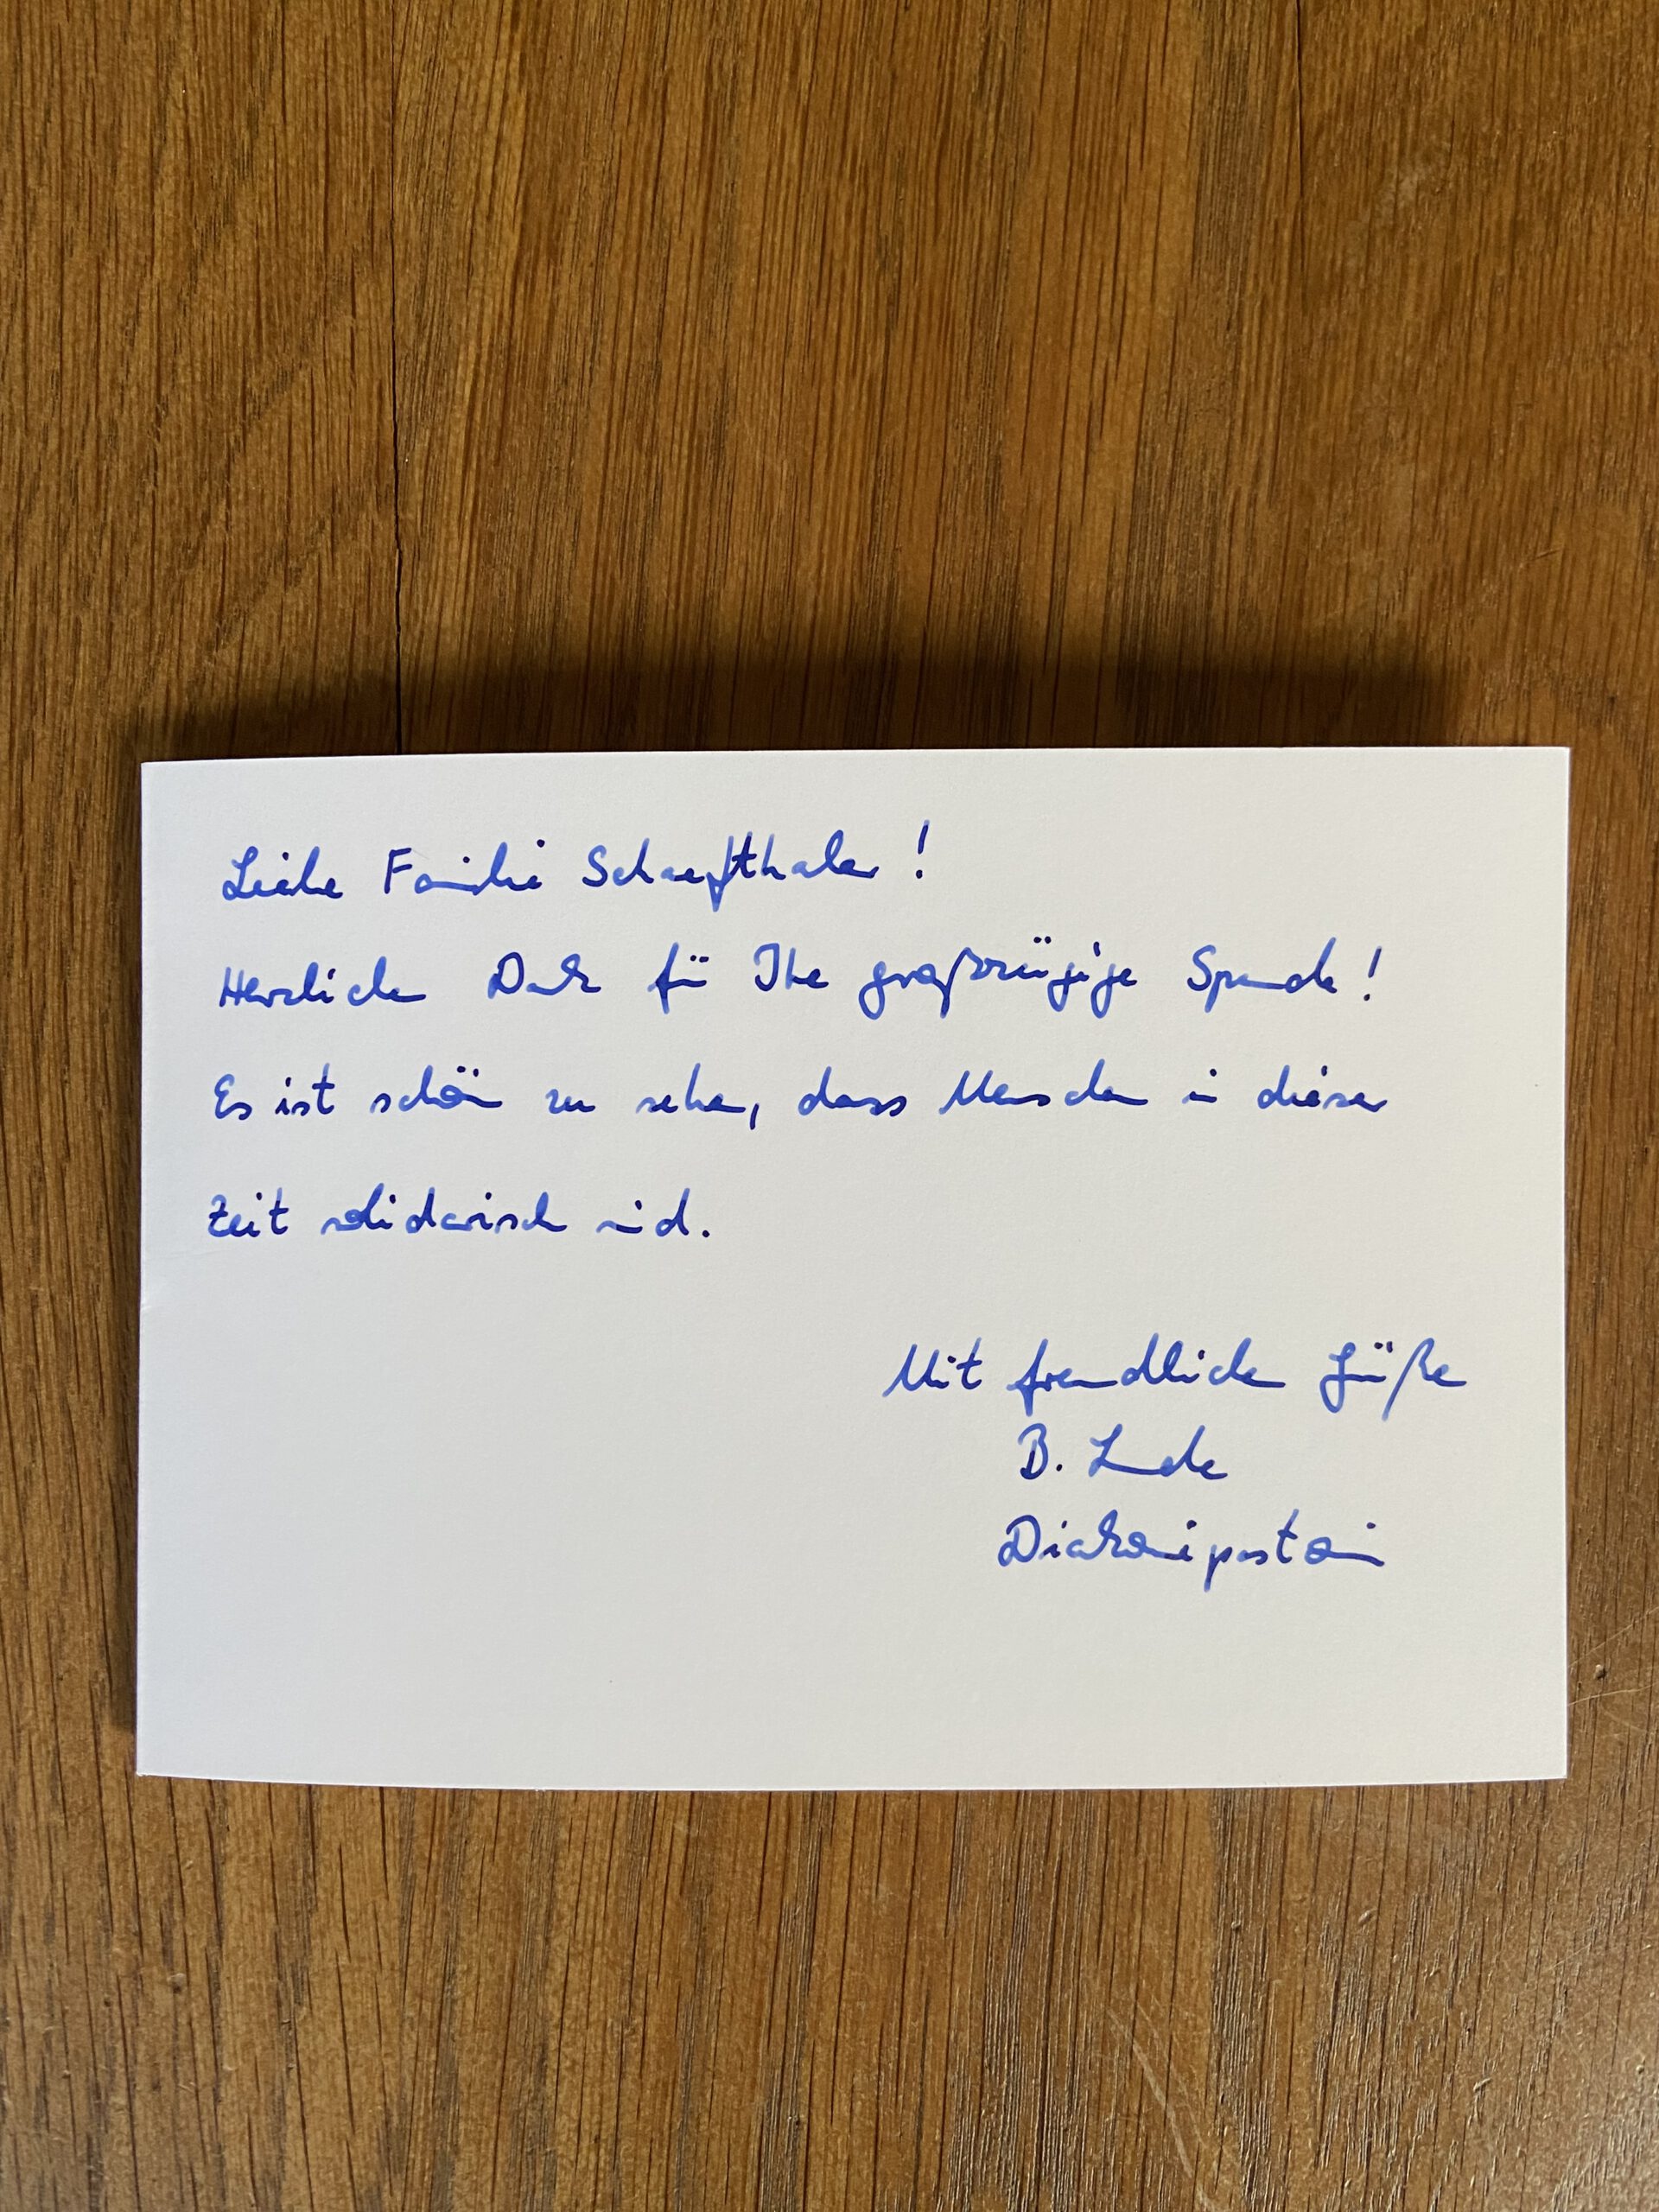 Liebe Familie Schaefthaler!
Herzlichen Dank für Ihre großzügige Spende!
Es ist schön zu sehen, dass Menschen in dieser
Zeit solidarisch sind.
Mit freundlichen Grüßen
B.
Diakoniepastorin